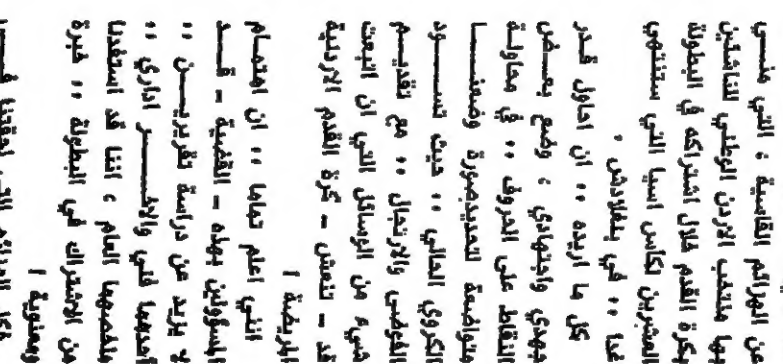 من الهزائم القاسية ؛ التي منــي
بها منتخب الاردن الوطني للناشئين
بكرة القدم خلال اشتراكه في البطولة
العشرين لكاس اسيا التي ستنتهي
غدا .. في بنغلادش .
كل ما اريده .. ان احاول قدر
جهدي واجتهادي ؛ وضع بعــض
النقاط على الحروف .. في محاولة
متواضعة لتحديدصورة وضعنــا
الكروي الحالي .. حيث تســـود
الفوضى والارتجال .. مع تقديــم
شيء من الوسائل التي ان اتبعت
قد - تنعش - كرة القدم الاردنية
المريضة !
انني اعلم تماما .. ان اهتمام
المسؤولين بهذه - القضية - قــد
لا يزيد عن دراسة تقريريــن ..
احدهما فني والاخـــر اداري ..
وملخصهما العام ؛ اننا قد استفدنا
من الاشتراك في البطولة .. خبرة
ومعنوية !
الهزائم التي